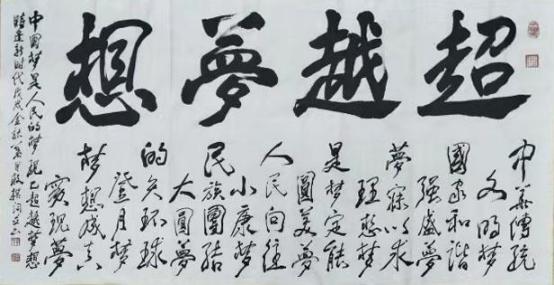 超越夢想
中華傳統
文明夢
國家和諧
強盛夢
夢寐以求
理想夢
是夢定能
圓美夢
人民向往
小康夢
民族團結
大圓夢
环球
登月夢
夢想成真
實現夢
中國夢是人民的夢 超越夢想
時逢新時代戊戌金秋